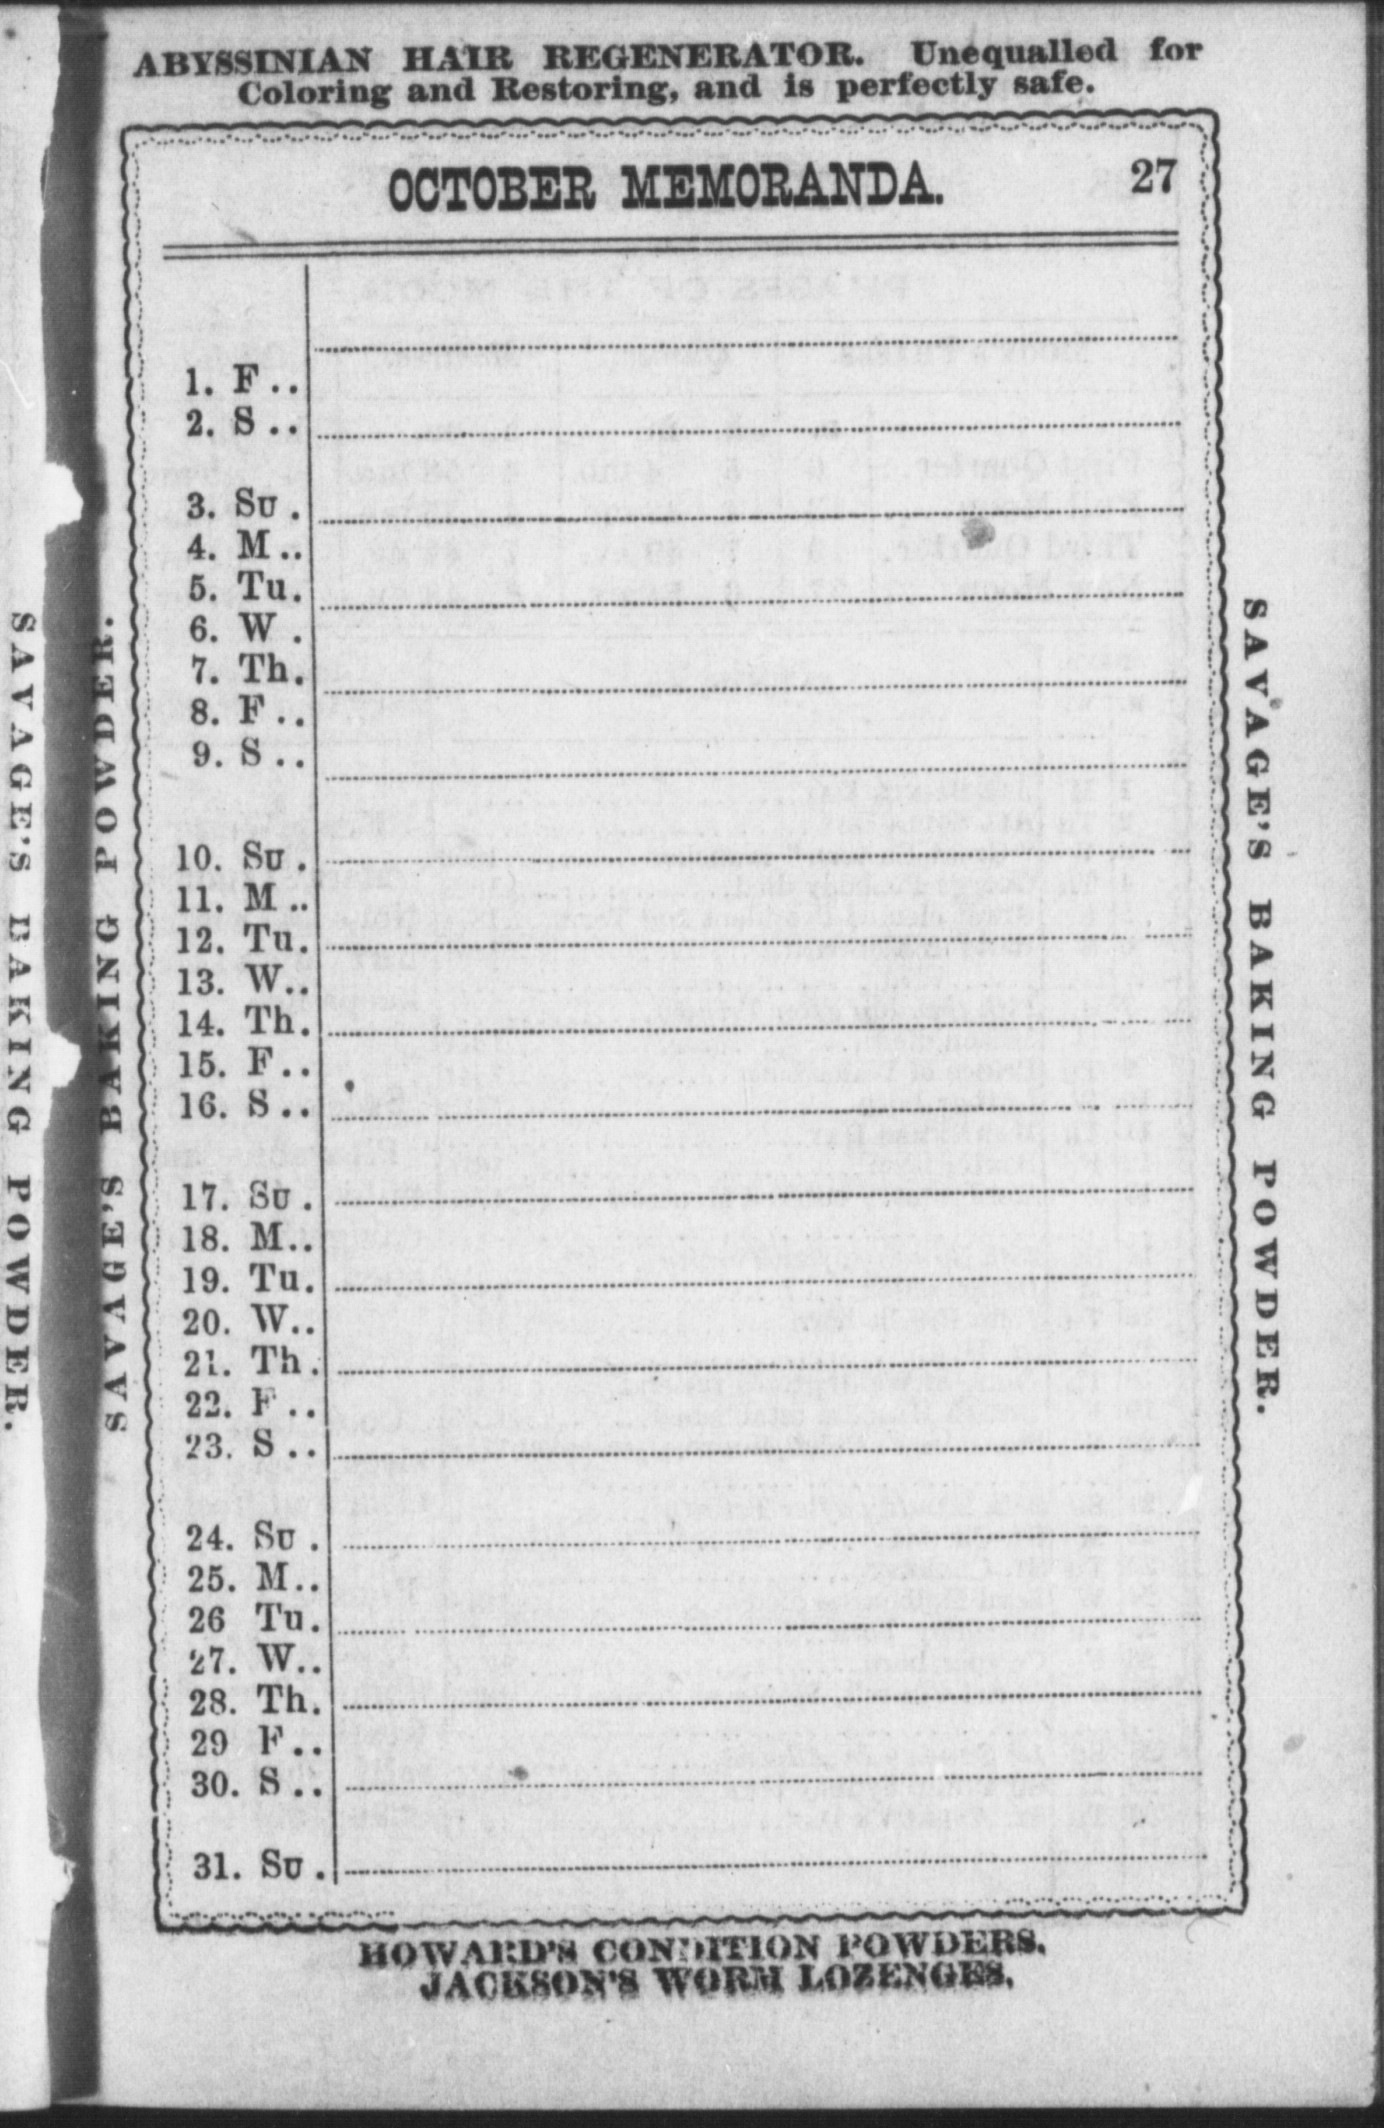 ABYSSINIAN HAIR REGENERATOR. Unequalled for
Coloring and Restoring, and is perfectly safe.
OCTOBER MEMORANDA. 27
1. F ..
2. S ..
3. SU .
4. M ..
5. Tu.
6. W .
7. Th.
8. F ..
9. S ..
10. SU .
11. M ..
12. Tu.
13. W..
14. Th.
15. F ..
16. S ..
17. SU .
18. M..
19. Tu.
20. W..
21. Th .
22. F ..
23. S ..
24. SU .
25. M..
26 Tu.
27. W..
28. Th.
29 F ..
30. S ..
31. SU .
HOWARD'S CONDITION POWDERS.
JACKSON'S WORM LOZENGES.
SAVAGE'S BAKING POWDER.
SAVAGE'S BAKING POWDER.
SAVAGE'S BAKING POWDER.